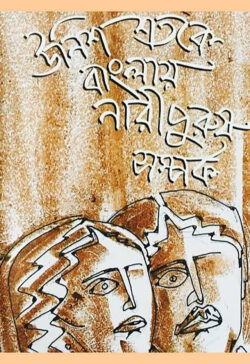 উনিশ শতকে
বাংলায়
নারী পুরুষ
সম্পর্ক